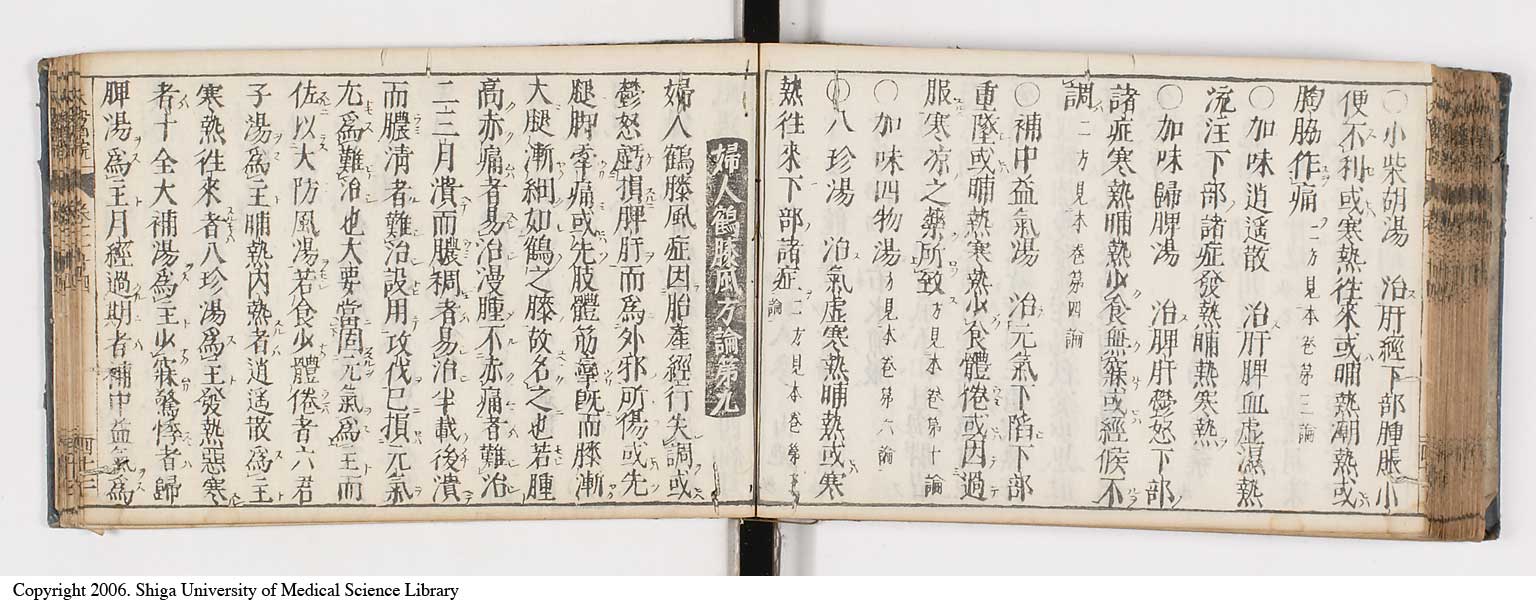 ○小柴胡湯　治肝經下部腫脹小
便不利或寒熱徃來或晡熱潮熱或
胸脇作痛二方見本卷第三論
○加味逍遥散　治肝脾血虚濕熱
流注下部諸症發熱晡熱寒熱
○加味歸脾湯　治脾肝鬱怒下部
諸症寒熱晡熱少食無寐或經候不
調二方見本卷第四論
○補中益氣湯　治元氣下陷下部
重墜或晡熱寒熱少食體倦或因過
服寒凉之藥所致方見本卷第十論
○加味四物湯方見本卷第六論
○八珍湯　治氣虚寒熱晡熱或寒
熱徃來下部諸症二方見本卷第論
婦人鶴膝風方論第九
婦人鶴膝風症因胎産經行失調或
鬱怒虧損脾肝而爲外邪所傷或先
腿脚牽痛或先肢體筋攣既而膝漸
大腿漸細如鶴之膝故名之也若腫
高赤痛者易治漫腫不赤痛者難治
二三月潰而膿稠者易治半載後潰
而膿清者難治設用攻伐已損元氣
尤爲難治也大要當固元氣爲主而
佐以大防風湯若食少體倦者六君
子湯爲主晡熱内熱者逍遥散爲主
寒熱徃來者八珍湯爲主發熱惡寒
者十全大補湯爲主少寐驚悸者歸
脾湯爲主月經過期者補中益氣爲
Copyright 2006. Shiga University of Medical Science Library